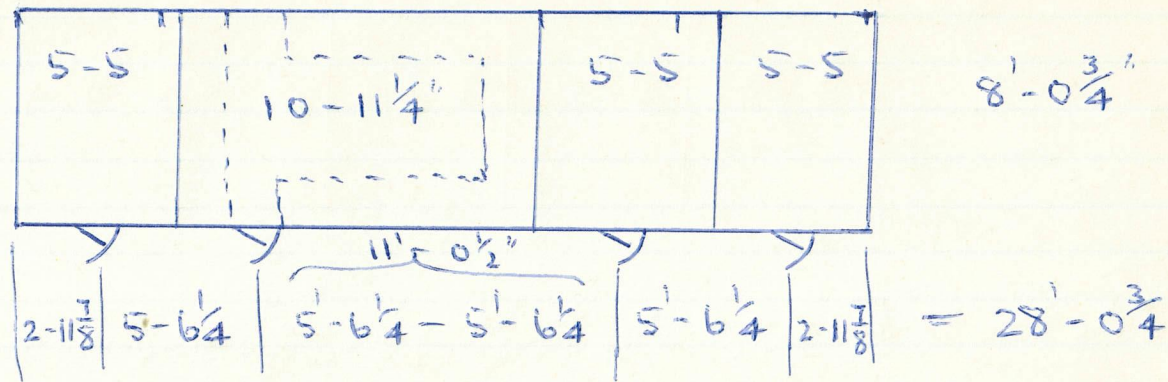 5-5 10-11 1/4" 5-5 5-5 8'-0 3/4"
11'-0 1/2"
2-11 7/8 5-6 1/4 5'-6 1/4 - 5'-6 1/4 5'-6 1/4 2-11 7/8 = 28'-0 3/4